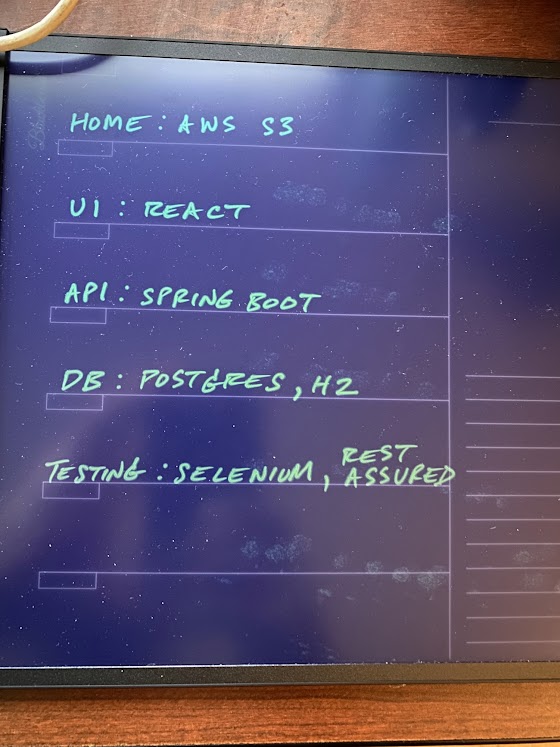 HOME: AWS S3
UI: REACT
API: SPRING BOOT
DB: POSTGRES, H2
TESTING: SELENIUM, REST ASSURED